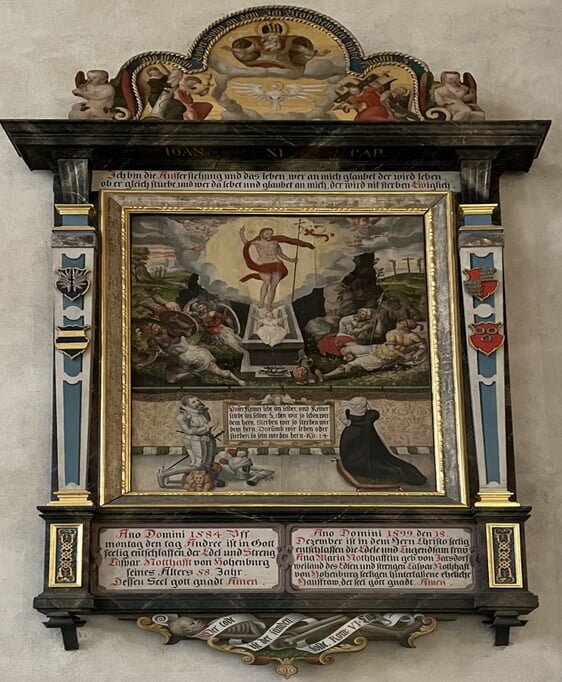 IOAN XI CAP
Ich bin die Aufferstehung und das leben, wer an mich glaubet der wird leben
ob er gleich stürbe, und wer da lebet und glaubet an mich, der wird nit sterben Ewiglich.
Unser Keiner lebt im selber, und Keiner
stirbt im selber. Leben wir so leben wir
dem hern, Sterben wir so sterben wir
dem hern. Darumb wir leben oder
sterben so sein wir des hern. Rö. 14.
Ano Domini 1584 Uff
montag den tag Andree ist in Gott
seelig entschlaffen der Edel und Streng
Caspar Notthafft von Hohenburg
seines Alters 58 Jahr.
Dessen Seel got gnadt Amen.
Ano Domini 1599 den 18.
Dezember ist in dem Hern Christo seelig
entschlaffen die Edele und Tugendsam fraw
Ana Maria Nothhafftin geb von
weiland des Edlen und strengen Caspar Nothhaft
von Hohenburg seeligen hinterlassene eheliche
Hausfraw, der seel got gnadt. Amen.
Der todt
ist der sünden
soldt, Rom: VI.